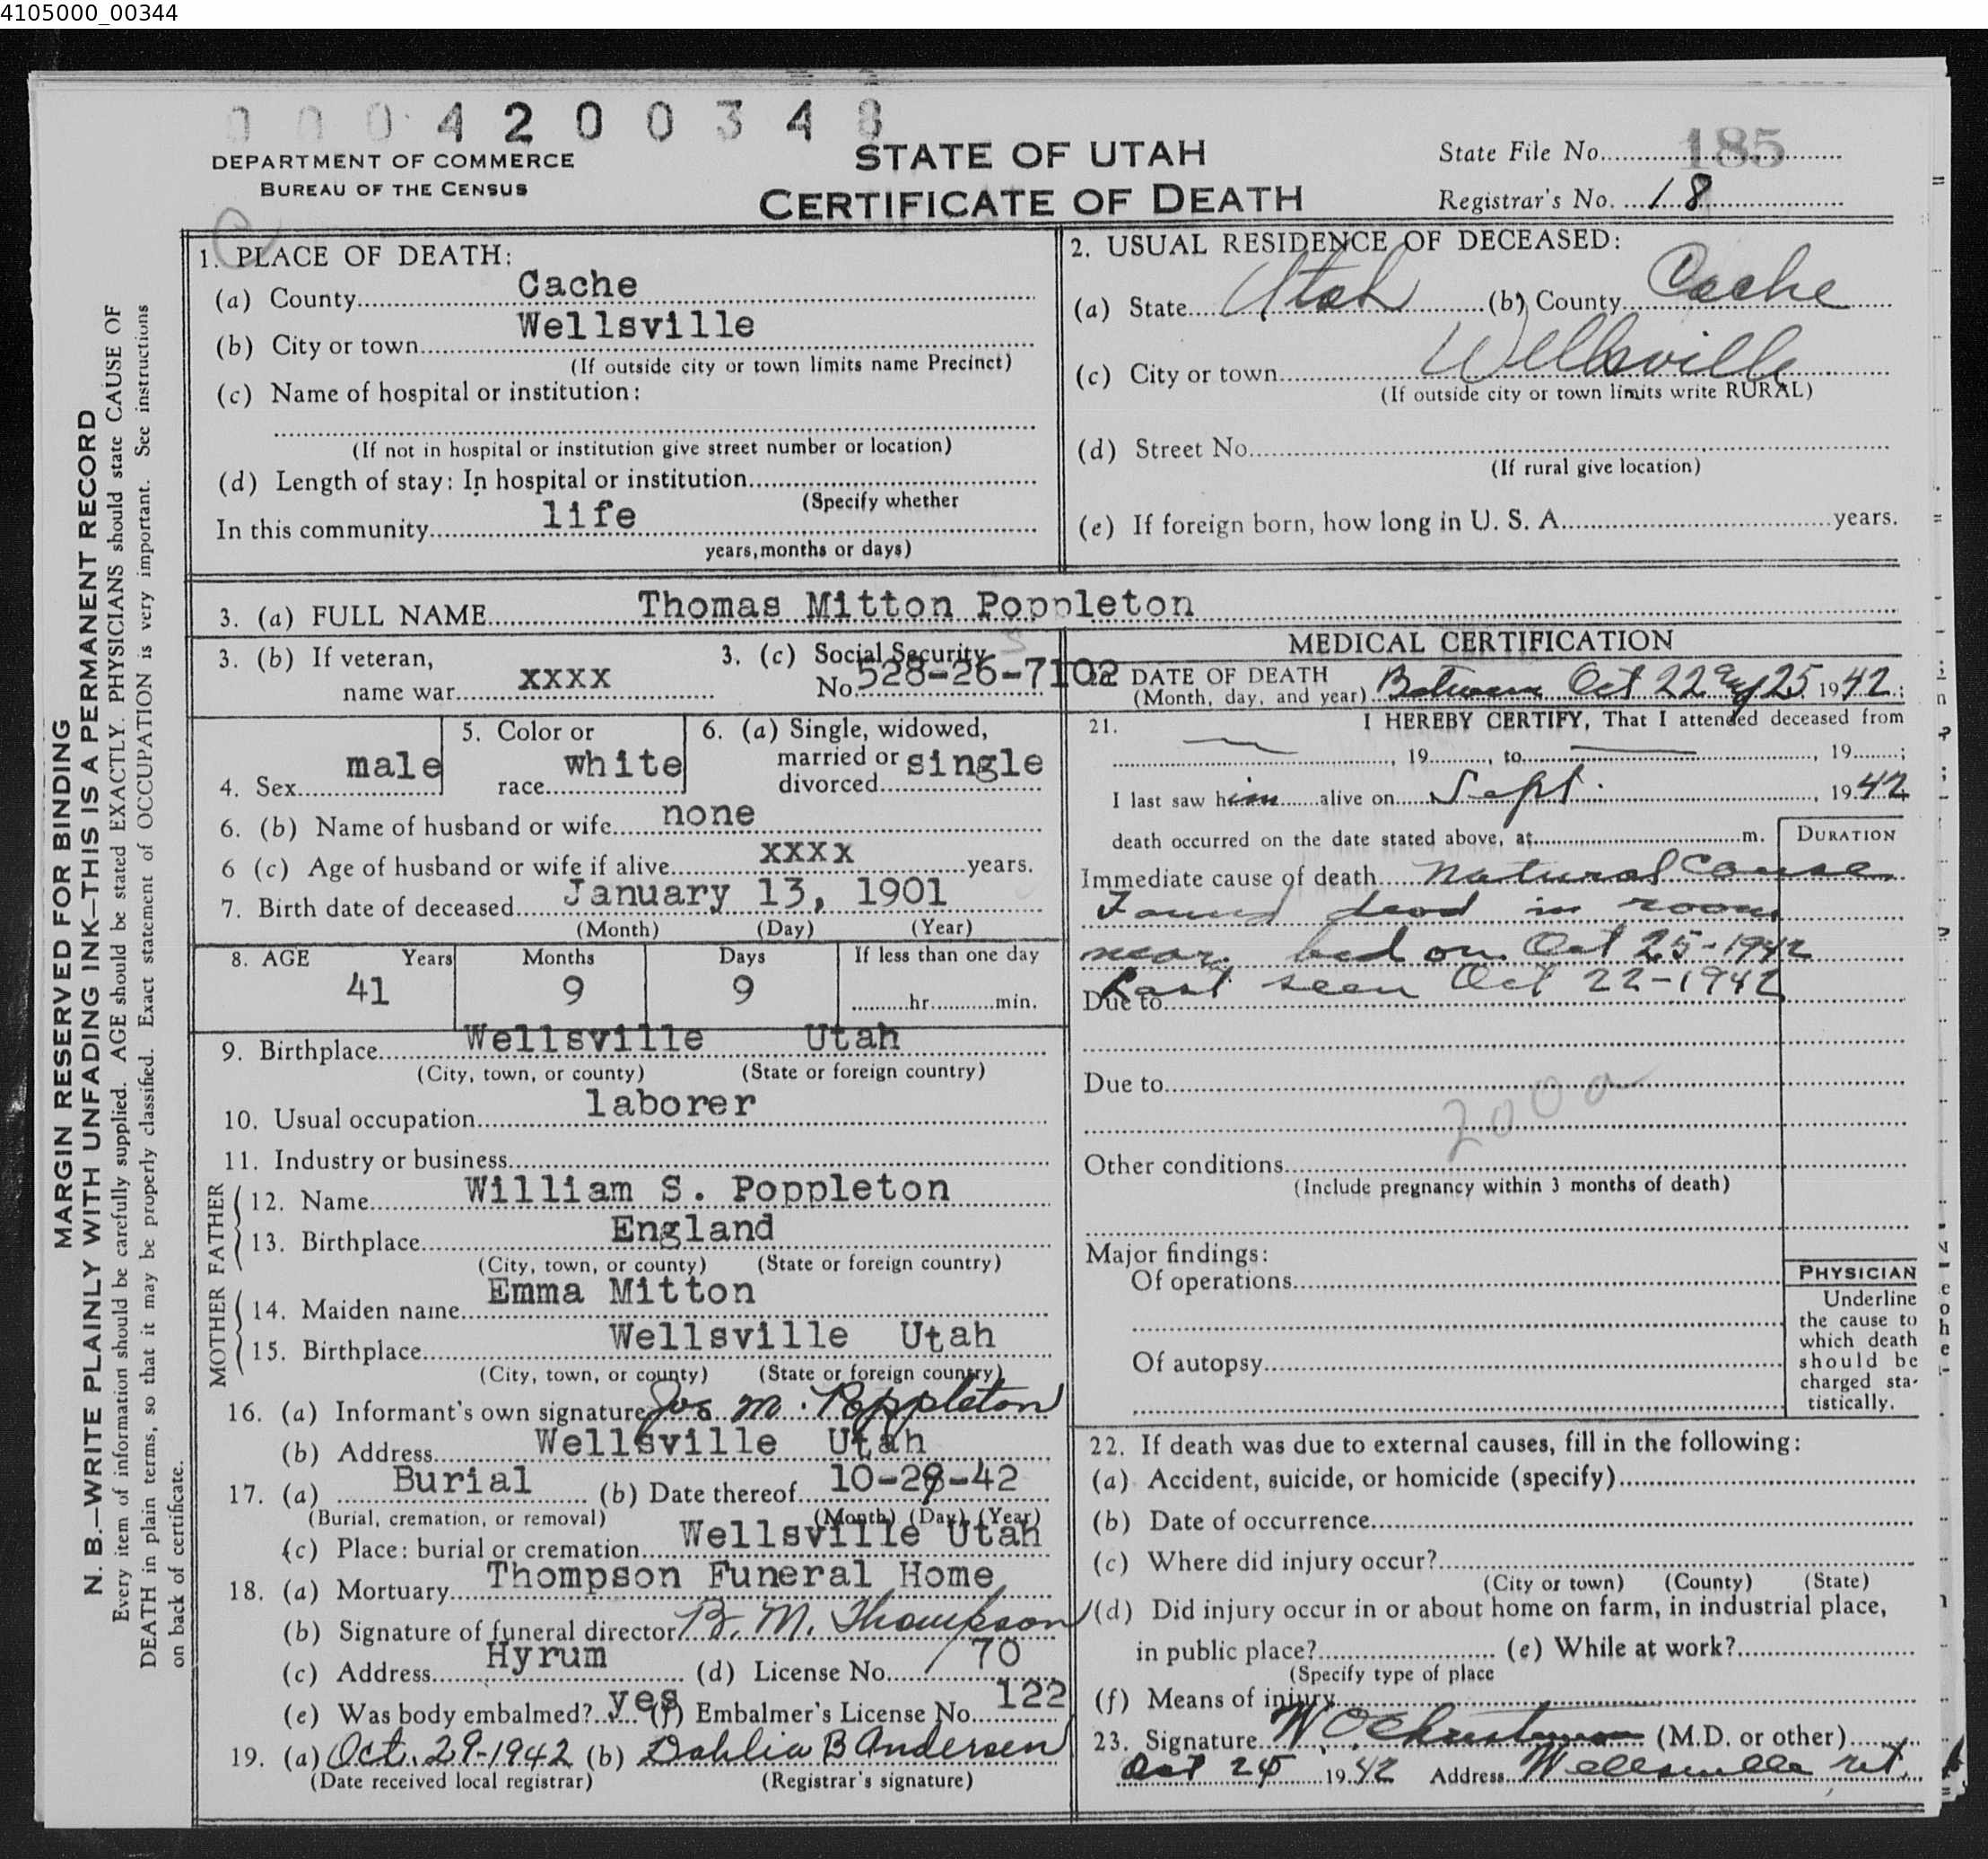 4105000_00344
0 0 0 4 2 0 0 3 4 8
DEPARTMENT OF COMMERCE
BUREAU OF THE CENSUS
STATE OF UTAH
CERTIFICATE OF DEATH
State File No. 185
Registrar's No. 18
MARGIN RESERVED FOR BINDING
N. B.—WRITE PLAINLY WITH UNFADING INK—THIS IS A PERMANENT RECORD
Every item of information should be carefully supplied. AGE should be stated EXACTLY. PHYSICIANS should state CAUSE OF
DEATH in plain terms, so that it may be properly classified. Exact statement of OCCUPATION is very important. See instructions
on back of certificate.
1. PLACE OF DEATH:
(a) County Cache
(b) City or town Wellsville
(If outside city or town limits name Precinct)
(c) Name of hospital or institution:
(If not in hospital or institution give street number or location)
(d) Length of stay: In hospital or institution
(Specify whether
In this community life
years, months or days)
2. USUAL RESIDENCE OF DECEASED:
(a) State Utah (b) County Cache
(c) City or town Wellsville
(If outside city or town limits write RURAL)
(d) Street No.
(If rural give location)
(e) If foreign born, how long in U. S. A. years.
3. (a) FULL NAME Thomas Mitton Poppleton
3. (b) If veteran,
name war xxxx
3. (c) Social Security
No. 528-26-7102
4. Sex male
5. Color or
race white
6. (a) Single, widowed,
married or
divorced single
6. (b) Name of husband or wife none
6 (c) Age of husband or wife if alive xxxx years.
7. Birth date of deceased January 13, 1901
(Month) (Day) (Year)
8. AGE Years Months Days If less than one day
41 9 9 hr. min.
9. Birthplace Wellsville Utah
(City, town, or county) (State or foreign country)
10. Usual occupation laborer
11. Industry or business
FATHER
12. Name William S. Poppleton
13. Birthplace England
(City, town, or county) (State or foreign country)
MOTHER
14. Maiden name Emma Mitton
15. Birthplace Wellsville Utah
(City, town, or county) (State or foreign country)
16. (a) Informant's own signature Jos M. Poppleton
(b) Address Wellsville Utah
17. (a) Burial (b) Date thereof 10-29-42
(Burial, cremation, or removal) (Month) (Day) (Year)
(c) Place: burial or cremation Wellsville Utah
18. (a) Mortuary Thompson Funeral Home
(b) Signature of funeral director B. M. Thompson
(c) Address Hyrum (d) License No. 170
(e) Was body embalmed? yes (f) Embalmer's License No. 122
19. (a) Oct. 29-1942 (b) Dahlia B Andersen
(Date received local registrar) (Registrar's signature)
MEDICAL CERTIFICATION
20. DATE OF DEATH
(Month, day, and year) Between Oct 22 and 25 1942;
21. I HEREBY CERTIFY, That I attended deceased from
, 19 , to , 19 ;
I last saw him alive on Sept. , 1942
death occurred on the date stated above, at m.
DURATION
Immediate cause of death Natural Cause
Found dead in room
near bed on Oct 25-1942
Due to Last seen Oct 22-1942
Due to
200a
Other conditions
(Include pregnancy within 3 months of death)
Major findings:
Of operations
Of autopsy
PHYSICIAN
Underline
the cause to
which death
should be
charged sta-
tistically.
22. If death was due to external causes, fill in the following:
(a) Accident, suicide, or homicide (specify)
(b) Date of occurrence
(c) Where did injury occur?
(City or town) (County) (State)
(d) Did injury occur in or about home on farm, in industrial place,
in public place? (e) While at work?
(Specify type of place
(f) Means of injury
23. Signature W O Christensen (M.D. or other)
Oct 25 1942 Address Wellsville Ut.